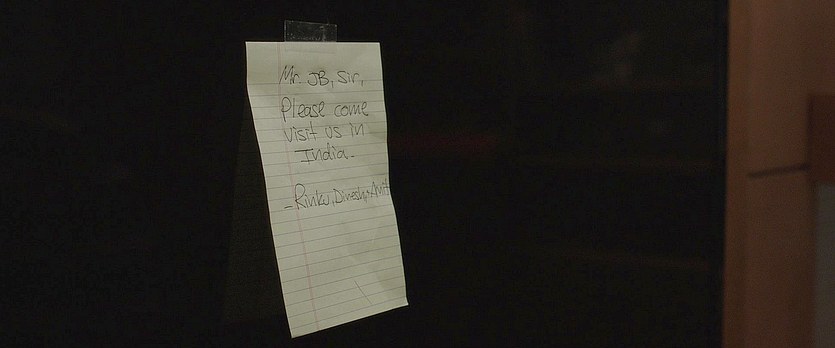 Mr. JB, Sir,
Please come
visit us in
India.
-Rinku, Dinesh, + Amit